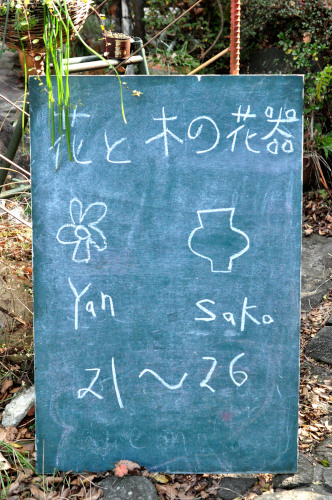 花と木の花器
Yan sako
21〜26